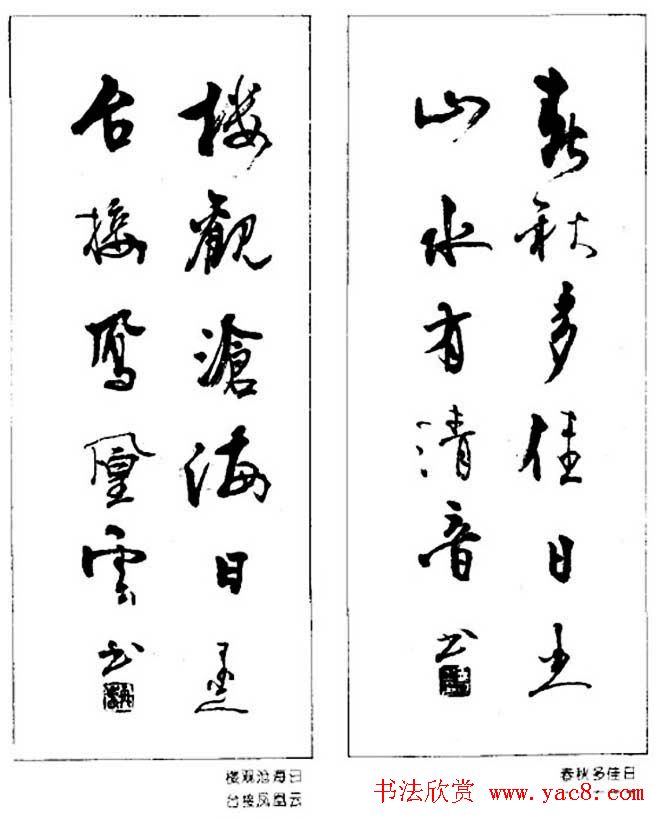 春秋多佳日
山水有清音 书
楼觀滄海日
台接鳳凰雲 书
春秋多佳日
楼观沧海日
台接凤凰云
书法欣赏 www.yac8.com